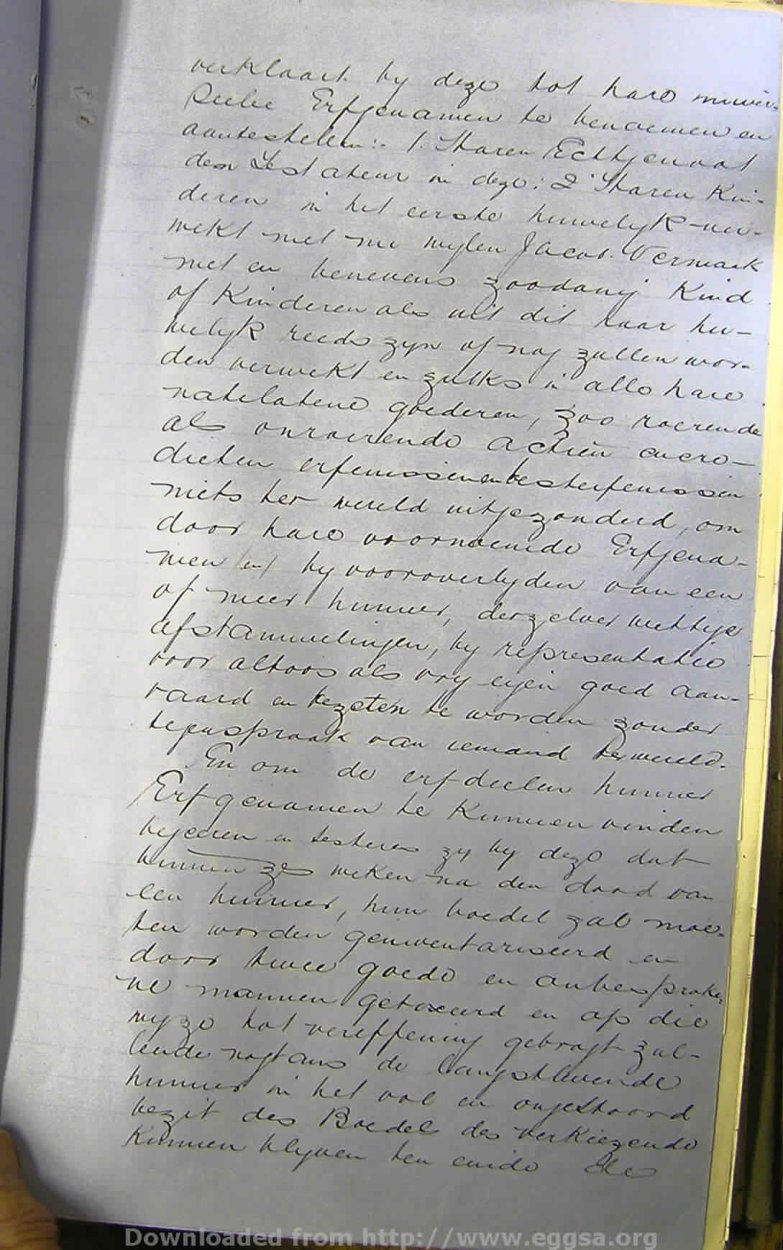 verklaart by deze tot hare univer-
seele Erfgenamen te benoemen en
aantestellen:- 1. Haren Echtgenoot
den Testateur in deze: 2 Haren Kin-
deren in het eerste huwelyk ver-
wekt met nu wylen Jacob. Vermaak
met en benevens zoodanig Kind
of Kinderen als uit dit haar hu-
welyk reeds zyn of nog zullen wor-
den verwekt en zulks in alle hare
natelatene goederen, zoo roerende
als onroerende actien
dieten erfenissen en besterfenissen
niets ter wereld uitgezonderd, om
door hare voornoemde Erfgena-
men en by vooroverlyden van een
of meer hunner, derzelver wettige
afstammelingen, by representatie
voor altoos als vry eigen goed aan-
vaard en bezeten te worden zonder
tegenspraak van iemand ter wereld.
En om de erfdeelen hunner
Erfgenamen te Kunnen vinden
begeeren en zy by deze dat
binnen zes weken na den dood van
een hunner, hun boedel zal moe-
ten worden geinventariseerd en
door twee goede en onbesproke-
ne mannen getaxeerd en op die
wyze tot vereffening gebragt zul-
lende nogtans de langstlevende
hunner in het vol en ongestoord
bezit des Boedel des verkiezende
Kunnen blyven ten einde
Downloaded from http://www.eggsa.org